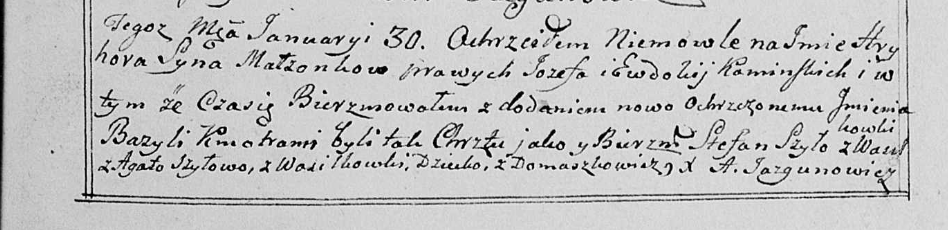 Tegoż Mca Januaryi 30. Ochrzciłem Niemowle na Imie Hry
hora Syna Małzonkow prawych Jozefa i Ewdokij Kaminskich i w
tym że Czasie Bierzmowałem z dodaniem nowo Ochrzczonemu Imienia
Bazyli Kmotrami byli tak Chrztu jako y Bierzm Stefan Szyło z Wasil
kowki
z Agato Szyłowo, z Wasilkowki, Dziecko, z Domaszkowicz, X A. Jazgunowicz